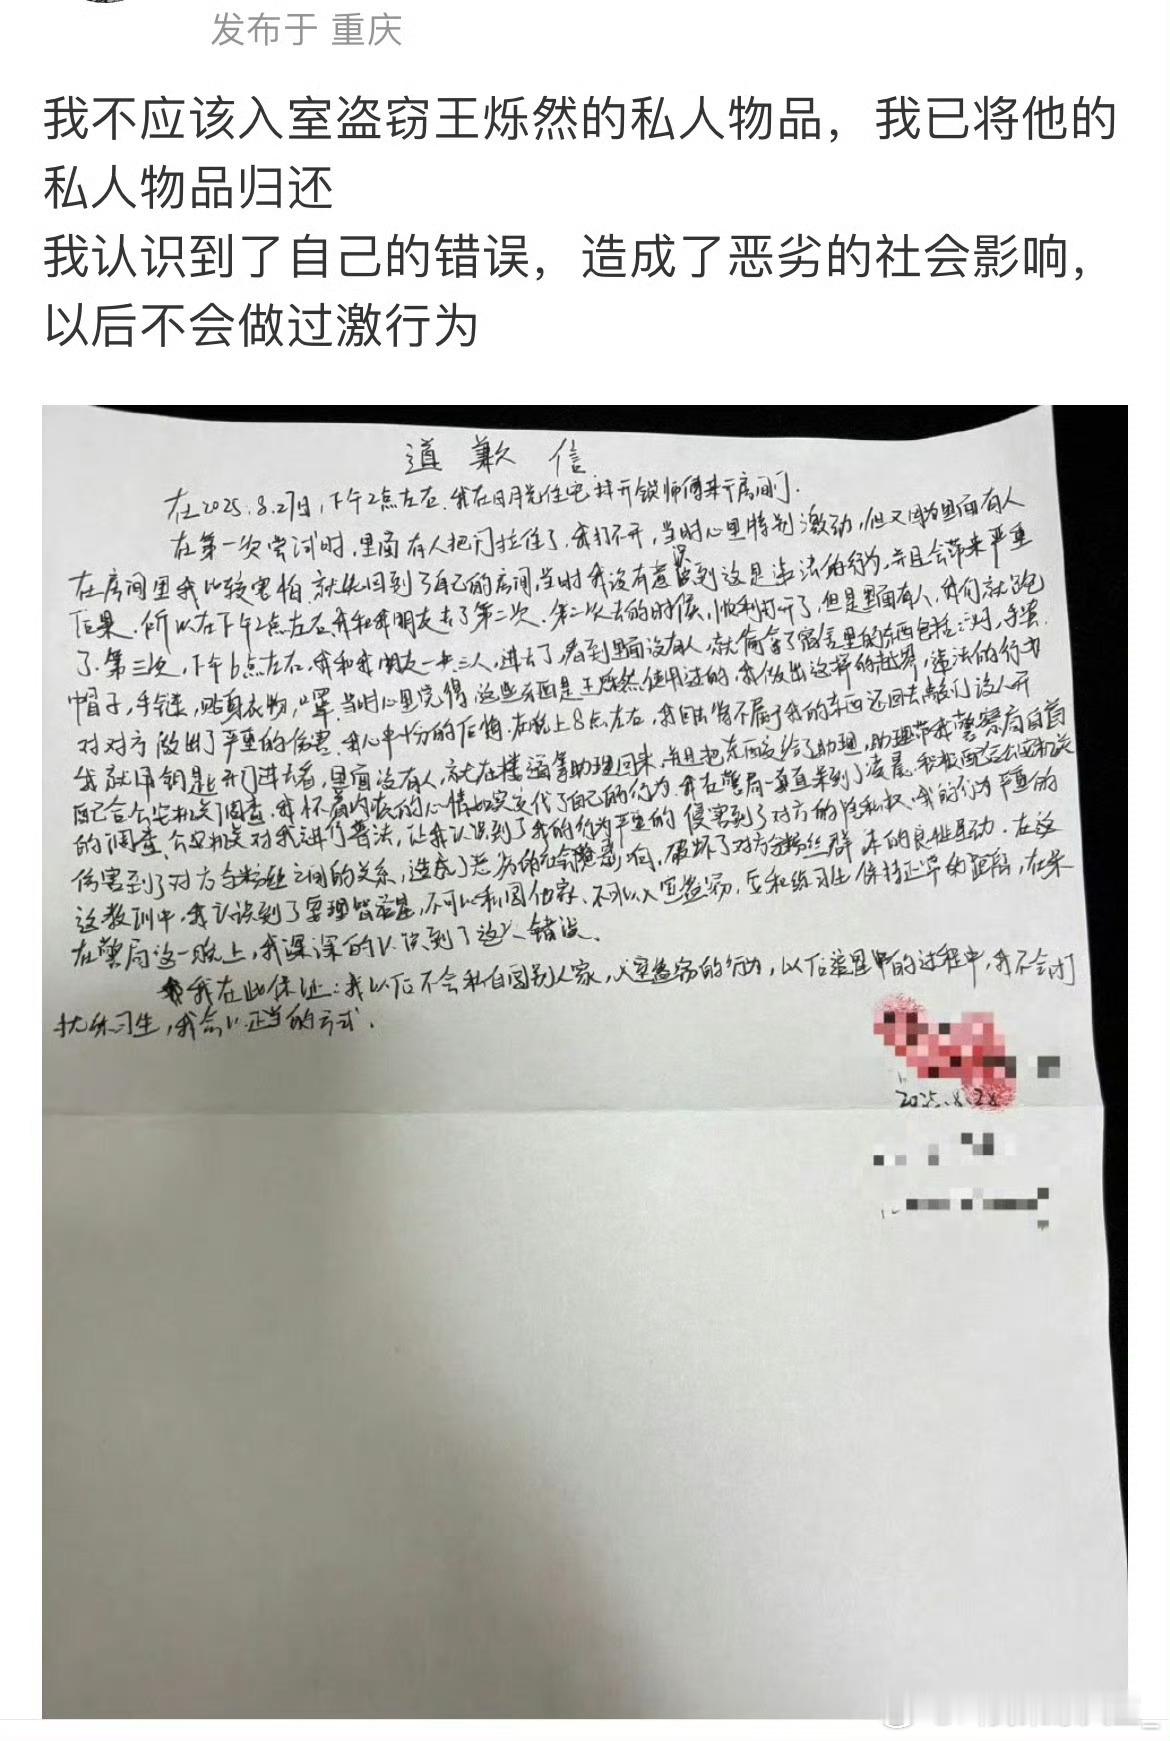 发布于 重庆
我不应该入室盗窃王烁然的私人物品，我已将他的
私人物品归还
我认识到了自己的错误，造成了恶劣的社会影响，
以后不会做过激行为
道歉信
在2025.8.27日，下午2点左右，我在日月光住宅找开锁师傅来开房间门.
在第一次尝试时，里面有人把门拉住了，我打不开，当时心里特别激动，但又因为里面有人
在房间里我比较害怕，就先回到了自己的房间，当时我没有意识到这是违法的行为，并且会带来严重
后果，所以在下午2点左右，我和我朋友去了第二次.第二次去的时候，顺利打开了，但是里面有人，我们就跑
了.第三次，下午6点左右，我和我朋友一共三人，进去了，看到里面没有人，就偷拿了宿舍里的东西包括
帽子，手链，贴身衣物，口罩，当时心里觉得这些东西是王烁然使用过的，我做出这样的越界，违法的行为
对对方做出了严重的伤害，我心中十分的后悔，在晚上8点左右，我自己将不属于我的东西还回去敲门没人开
我就用钥匙开门进去看，里面没有人，就在楼道等助理回来，并且把东西交给了助理，助理带我警察局自首
的调查，公安机关对我进行普法，让我认识到了我的行为严重的侵害到了对方的隐私权.我的行为严重的
伤害到了对方与粉丝之间的关系，造成了恶劣的社会影响，破坏了对方与粉丝群体的良性互动.在这
这教训中，我认识到了要理智追星，不可以私闯他家，不可以入室盗窃，应和练习生保持正常的距离，在来
在警局这一晚上，我深深的认识到了这个错误.
我在此保证：我以后不会私自闯别人家，入室盗窃的行为，以后追星中的过程中，我不会打
扰练习生，我会以正当的方式.
2025.8.28